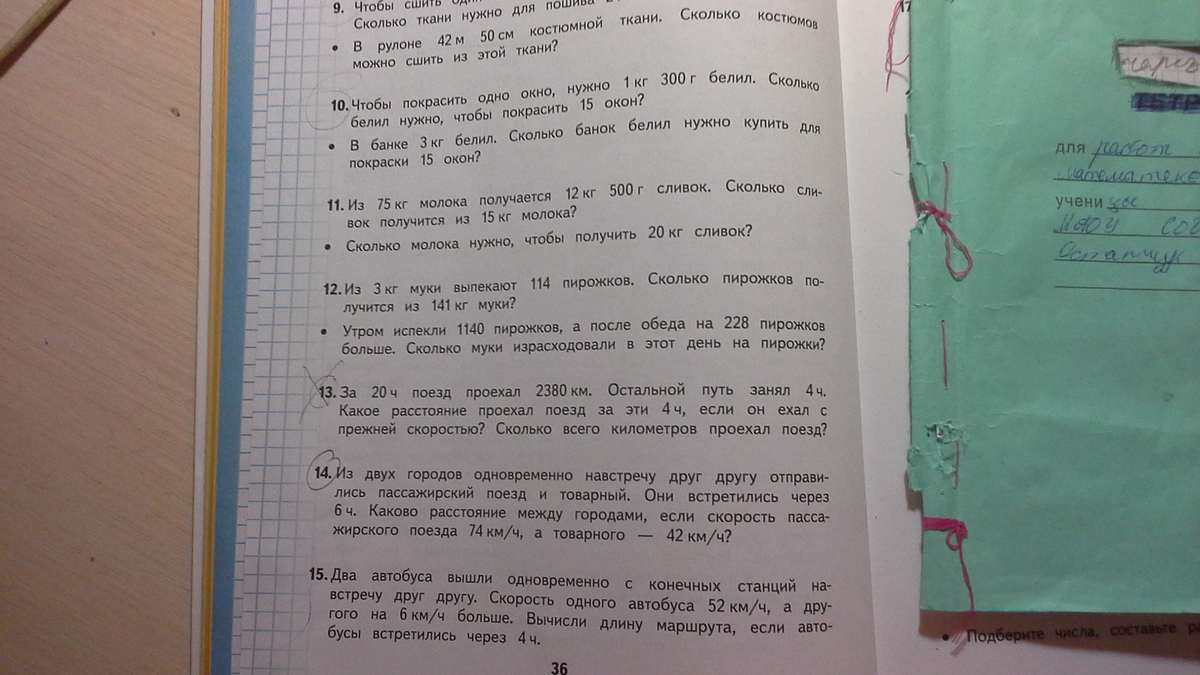 9. Чтобы сшить
Сколько ткани нужно для пошива
• В рулоне 42 м 50 см костюмной ткани. Сколько костюмов
можно сшить из этой ткани?
10. Чтобы покрасить одно окно, нужно 1 кг 300 г белил. Сколько
белил нужно, чтобы покрасить 15 окон?
• В банке 3 кг белил. Сколько банок белил нужно купить для
покраски 15 окон?
11. Из 75 кг молока получается 12 кг 500 г сливок. Сколько сли-
вок получится из 15 кг молока?
• Сколько молока нужно, чтобы получить 20 кг сливок?
12. Из 3 кг муки выпекают 114 пирожков. Сколько пирожков по-
лучится из 141 кг муки?
• Утром испекли 1140 пирожков, а после обеда на 228 пирожков
больше. Сколько муки израсходовали в этот день на пирожки?
13. За 20 ч поезд проехал 2380 км. Остальной путь занял 4 ч.
Какое расстояние проехал поезд за эти 4 ч, если он ехал с
прежней скоростью? Сколько всего километров проехал поезд?
14. Из двух городов одновременно навстречу друг другу отправи-
лись пассажирский поезд и товарный. Они встретились через
6 ч. Каково расстояние между городами, если скорость пасса-
жирского поезда 74 км/ч, а товарного — 42 км/ч?
15. Два автобуса вышли одновременно с конечных станций на-
встречу друг другу. Скорость одного автобуса 52 км/ч, а дру-
гого на 6 км/ч больше. Вычисли длину маршрута, если авто-
бусы встретились через 4 ч.
36
17
для работ
математике
учени цы
Остапчук
• Подберите числа, составьте